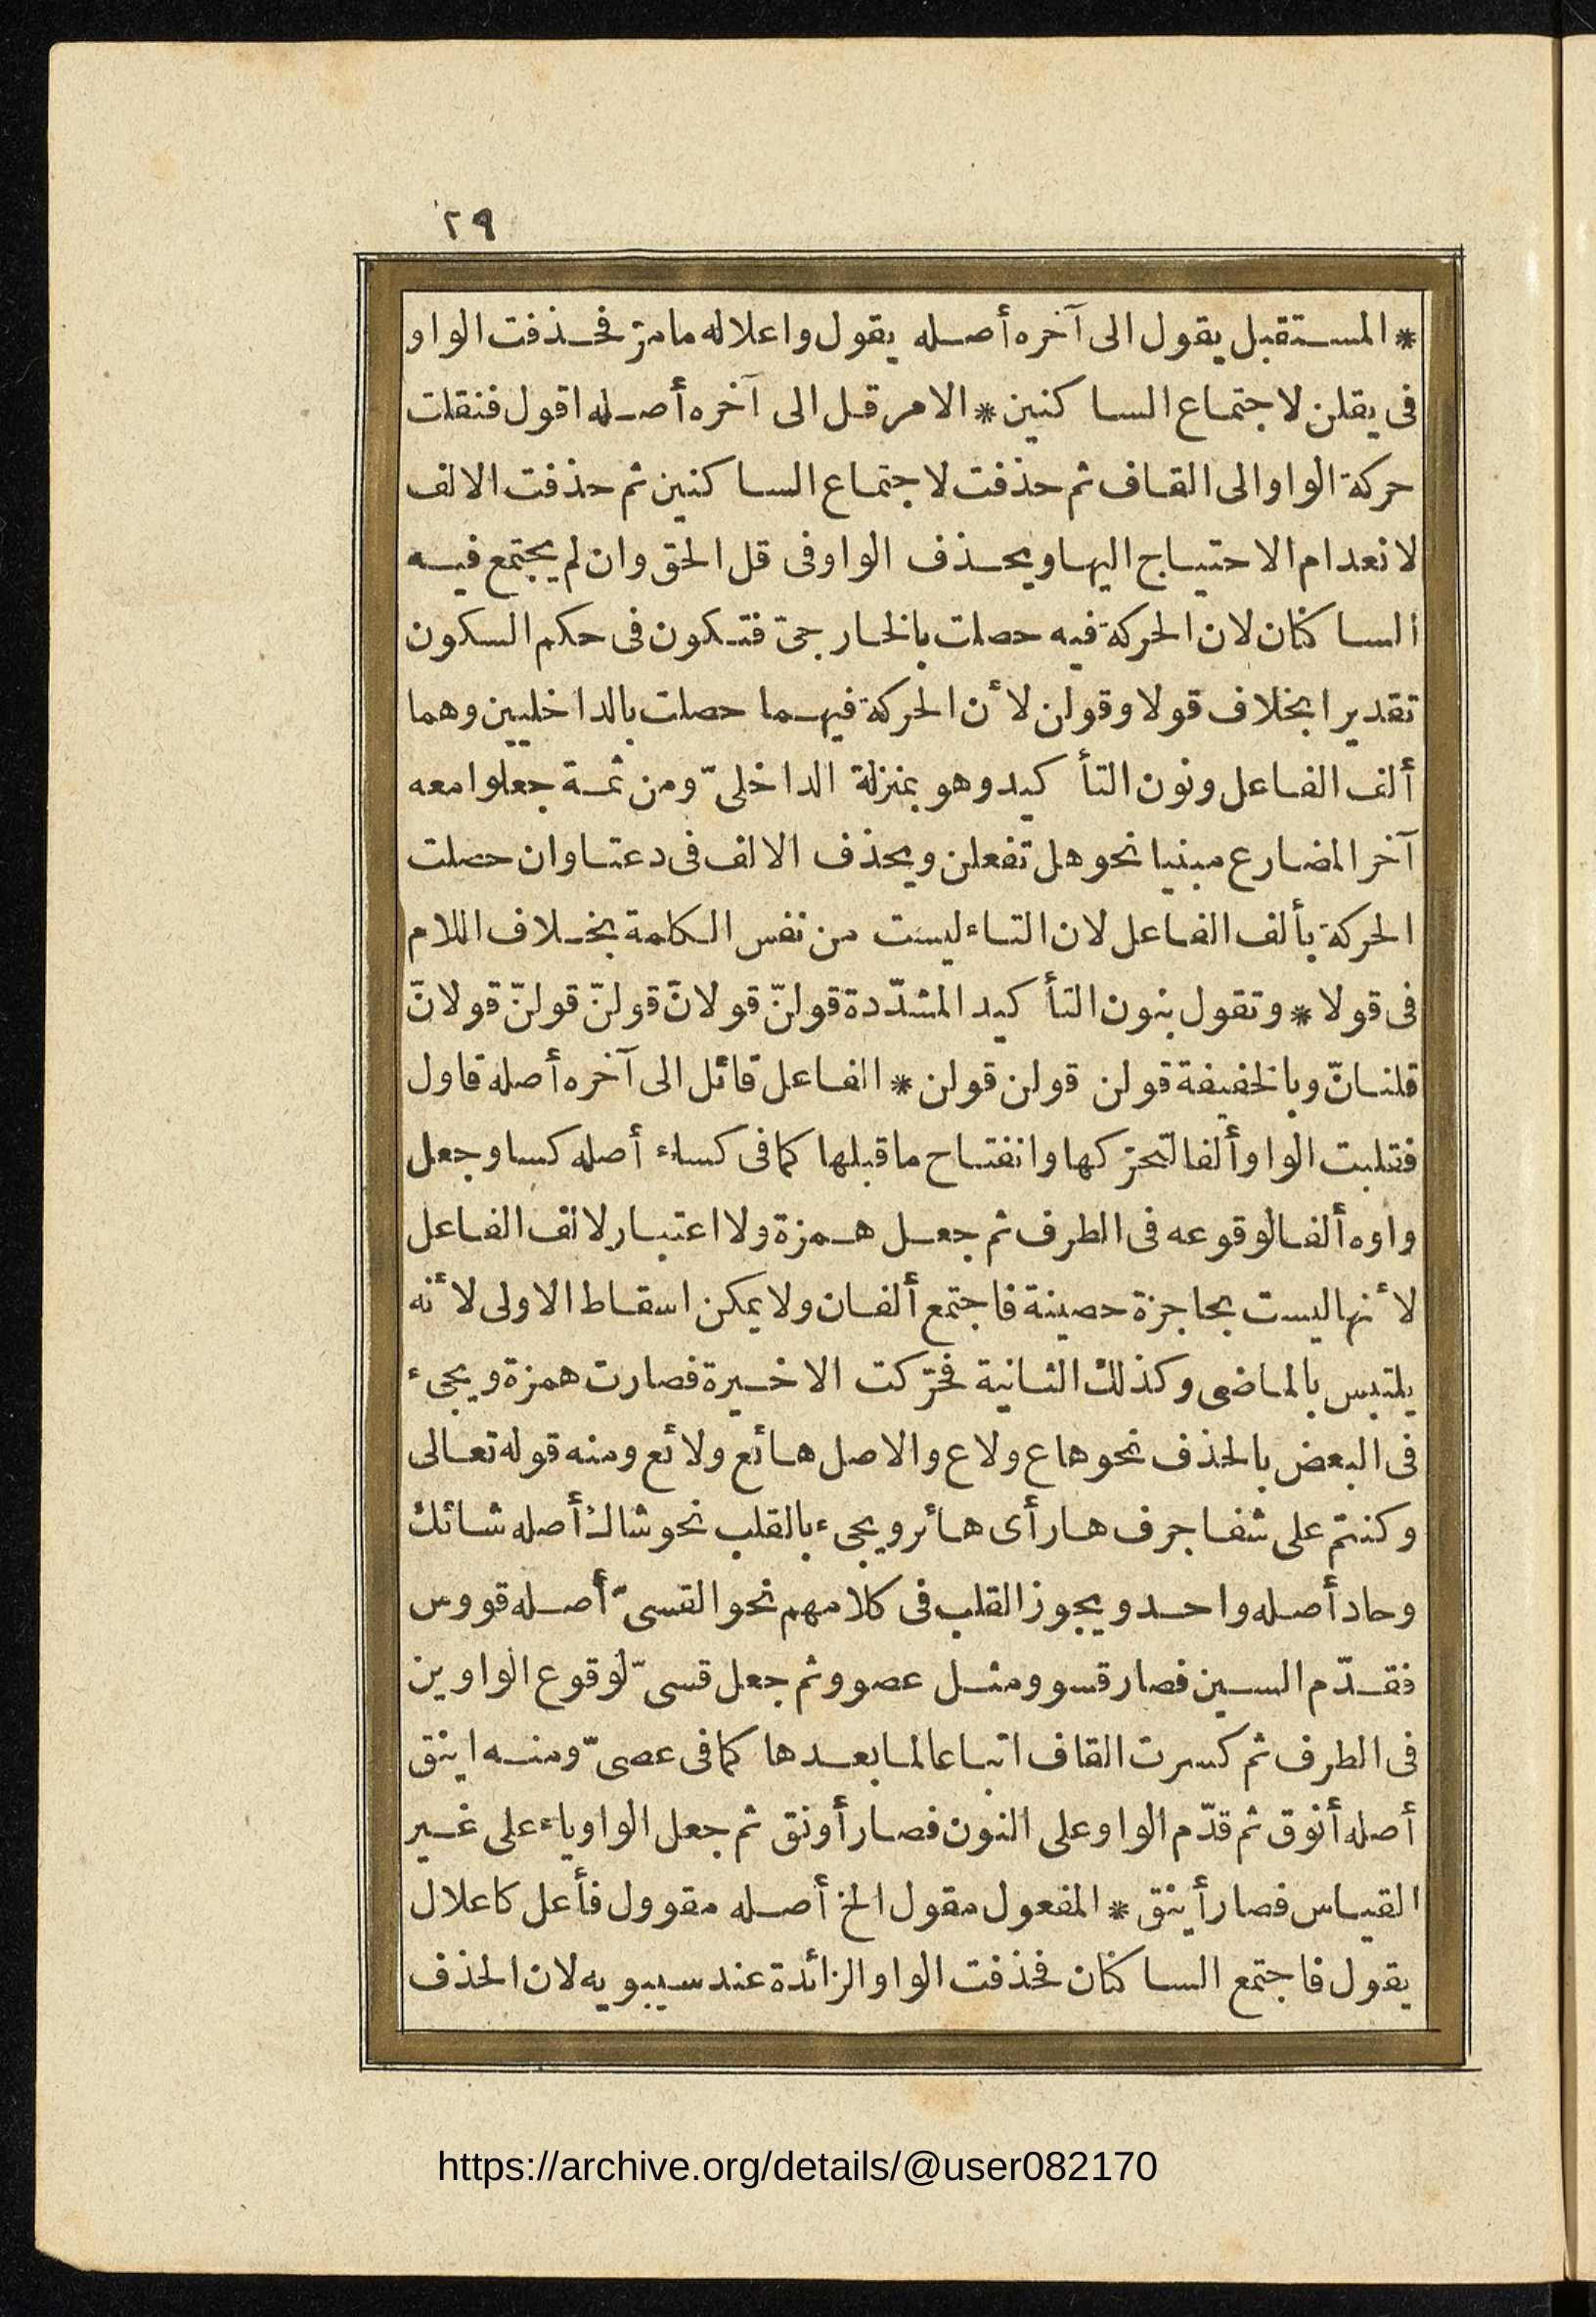 ٢٩
* المستقبل يقول الى آخره أصله يقول واعلاله مامرّ فحذفت الواو
فى يقلن لاجتماع الساكنين * الامر قل الى آخره أصله اقول فنقلت
حركة الواو الى القاف ثم حذفت لاجتماع الساكنين ثم حذفت الالف
لانعدام الاحتياج اليها ويحذف الواو فى قل الحق وان لم يجتمع فيه
الساكنان لان الحركة فيه حصلت بالخارجىّ فتكون فى حكم السكون
تقديرا بخلاف قولا وقولن لأن الحركة فيهما حصلت بالداخليين وهما
ألف الفاعل ونون التأكيد وهو بمنزلة الداخلىّ ومن ثمة جعلوا معه
آخر المضارع مبنيا نحو هل تفعلن ويحذف الالف فى دعتا وان حصلت
الحركة بألف الفاعل لان التاء ليست من نفس الكلمة بخلاف اللام
فى قولا * وتقول بنون التأكيد المشدّدة قولنّ قولانّ قولنّ قولنّ قولانّ
قلنانّ وبالخفيفة قولن قولن قولن * الفاعل قائل الى آخره أصله قاول
فقلبت الواو ألفا لتحرّكها وانفتاح ماقبلها كما فى كساء أصله كساو جعل
واوه ألفا لوقوعه فى الطرف ثم جعل همزة ولا اعتبار لالف الفاعل
لأنها ليست بحاجزة حصينة فاجتمع ألفان ولا يمكن اسقاط الاولى لأنه
يلتبس بالماضى وكذلك الثانية فحرّكت الاخيرة فصارت همزة ويجىء
فى البعض بالحذف نحو هاع ولاع والاصل هائع ولائع ومنه قوله تعالى
وكنتم على شفا جرف هار أى هائر ويجىء بالقلب نحو شاك أصله شائك
وحاد أصله واحد ويجوز القلب فى كلامهم نحو القسىّ أصله قووس
فقدّم السين فصار قسوو مثل عصوو ثم جعل قسىّ لوقوع الواوين
فى الطرف ثم كسرت القاف اتباعا لما بعدها كما فى عصىّ ومنه اينق
أصله أنوق ثم قدّم الواو على النون فصار أونق ثم جعل الواو ياء على غير
القياس فصار أينق * المفعول مقول الخ أصله مقوول فأعل كاعلال
يقول فاجتمع الساكنان فحذفت الواو الزائدة عند سيبويه لان الحذف
https://archive.org/details/@user082170